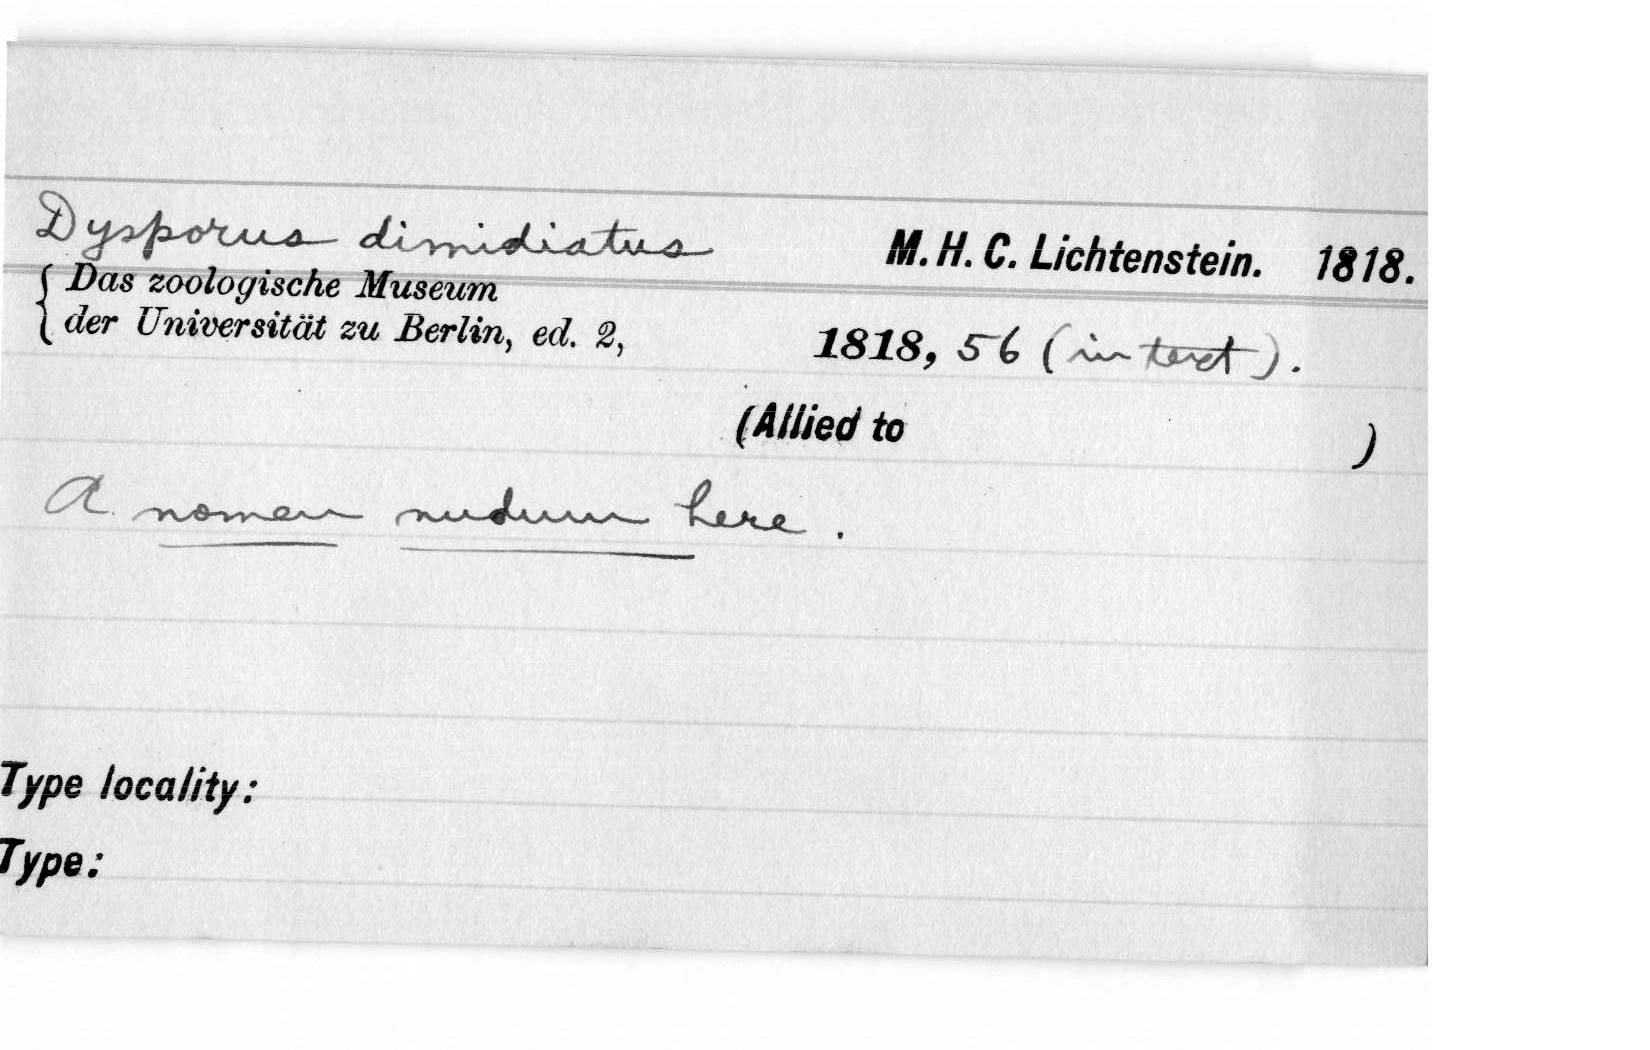 Dysporus dimidiatus M. H. C. Lichtenstein. 1818.
{ Das zoologische Museum
der Universität zu Berlin, ed. 2, 1818, 56 (in text).
(Allied to )
A nomen nudum here.
Type locality:
Type: